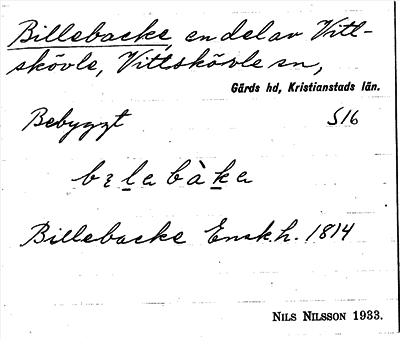 Billebacke, en del av Vitt-
skövle, Vittskövle sn,
Gärds hd, Kristianstads län.
Bebyggt S16
bɛlabàka
Billebacke Ensk.h. 1814
NILS NILSSON 1933.